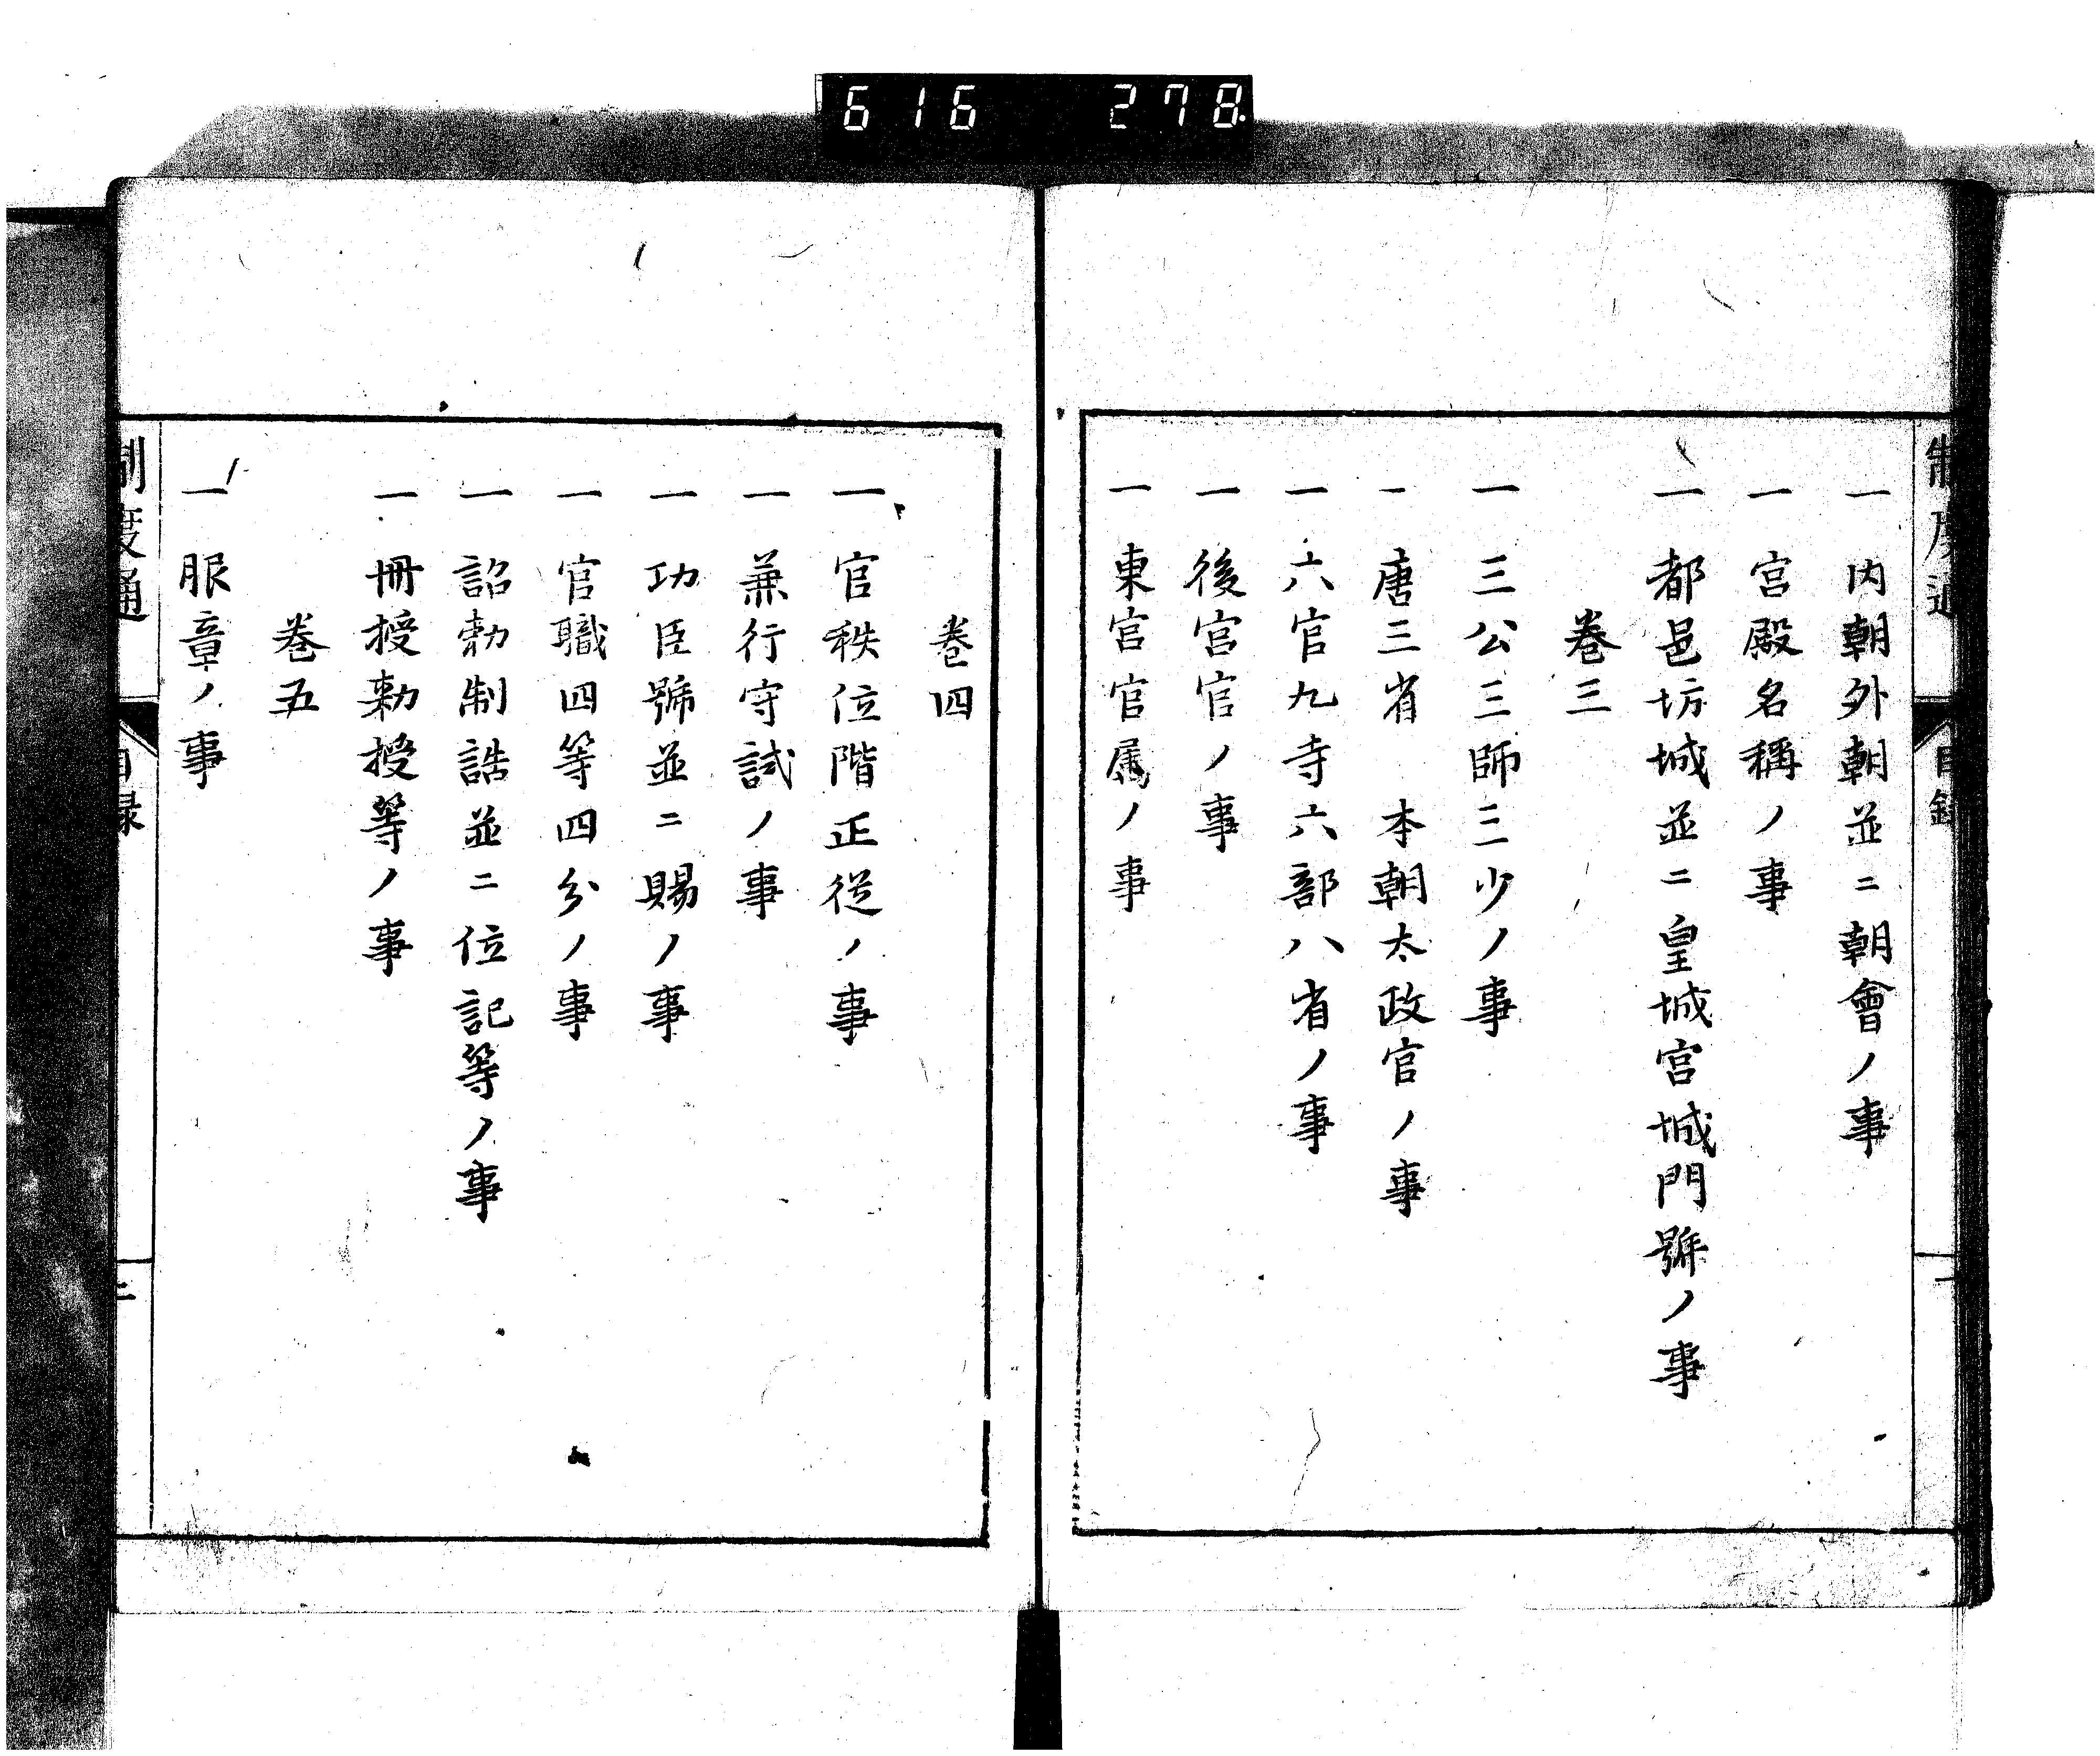 616 278
制度通 目録 一
一 内朝外朝並ニ朝會ノ事
一 宮殿名稱ノ事
一 都邑坊城並ニ皇城宮城門號ノ事
巻三
一 三公三師三少ノ事
一 唐三省 本朝太政官ノ事
一 六官九寺六部八省ノ事
一 後宮官ノ事
一 東宮官属ノ事
巻四
一 官秩位階正從ノ事
一 兼行守試ノ事
一 功臣號並ニ賜ノ事
一 官職四等四分ノ事
一 詔勅制誥並ニ位記等ノ事
一 冊授勅授等ノ事
巻五
一 服章ノ事
制度通 目録 二